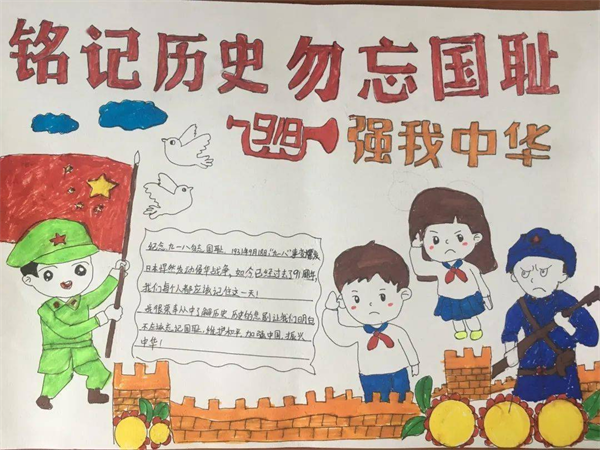 铭记历史 勿忘国耻
918
强我中华
纪念九一八勿忘国耻 1931年9月18日,"九一八"事变爆发
日本悍然发动侵华战争,如今已经过去了91周年,
我们每个人都应该记住这一天!
我很荣幸从中了解历史 历史的悲剧让我们明白
不应该忘记国耻,维护和平 加强中国,振兴
中华!